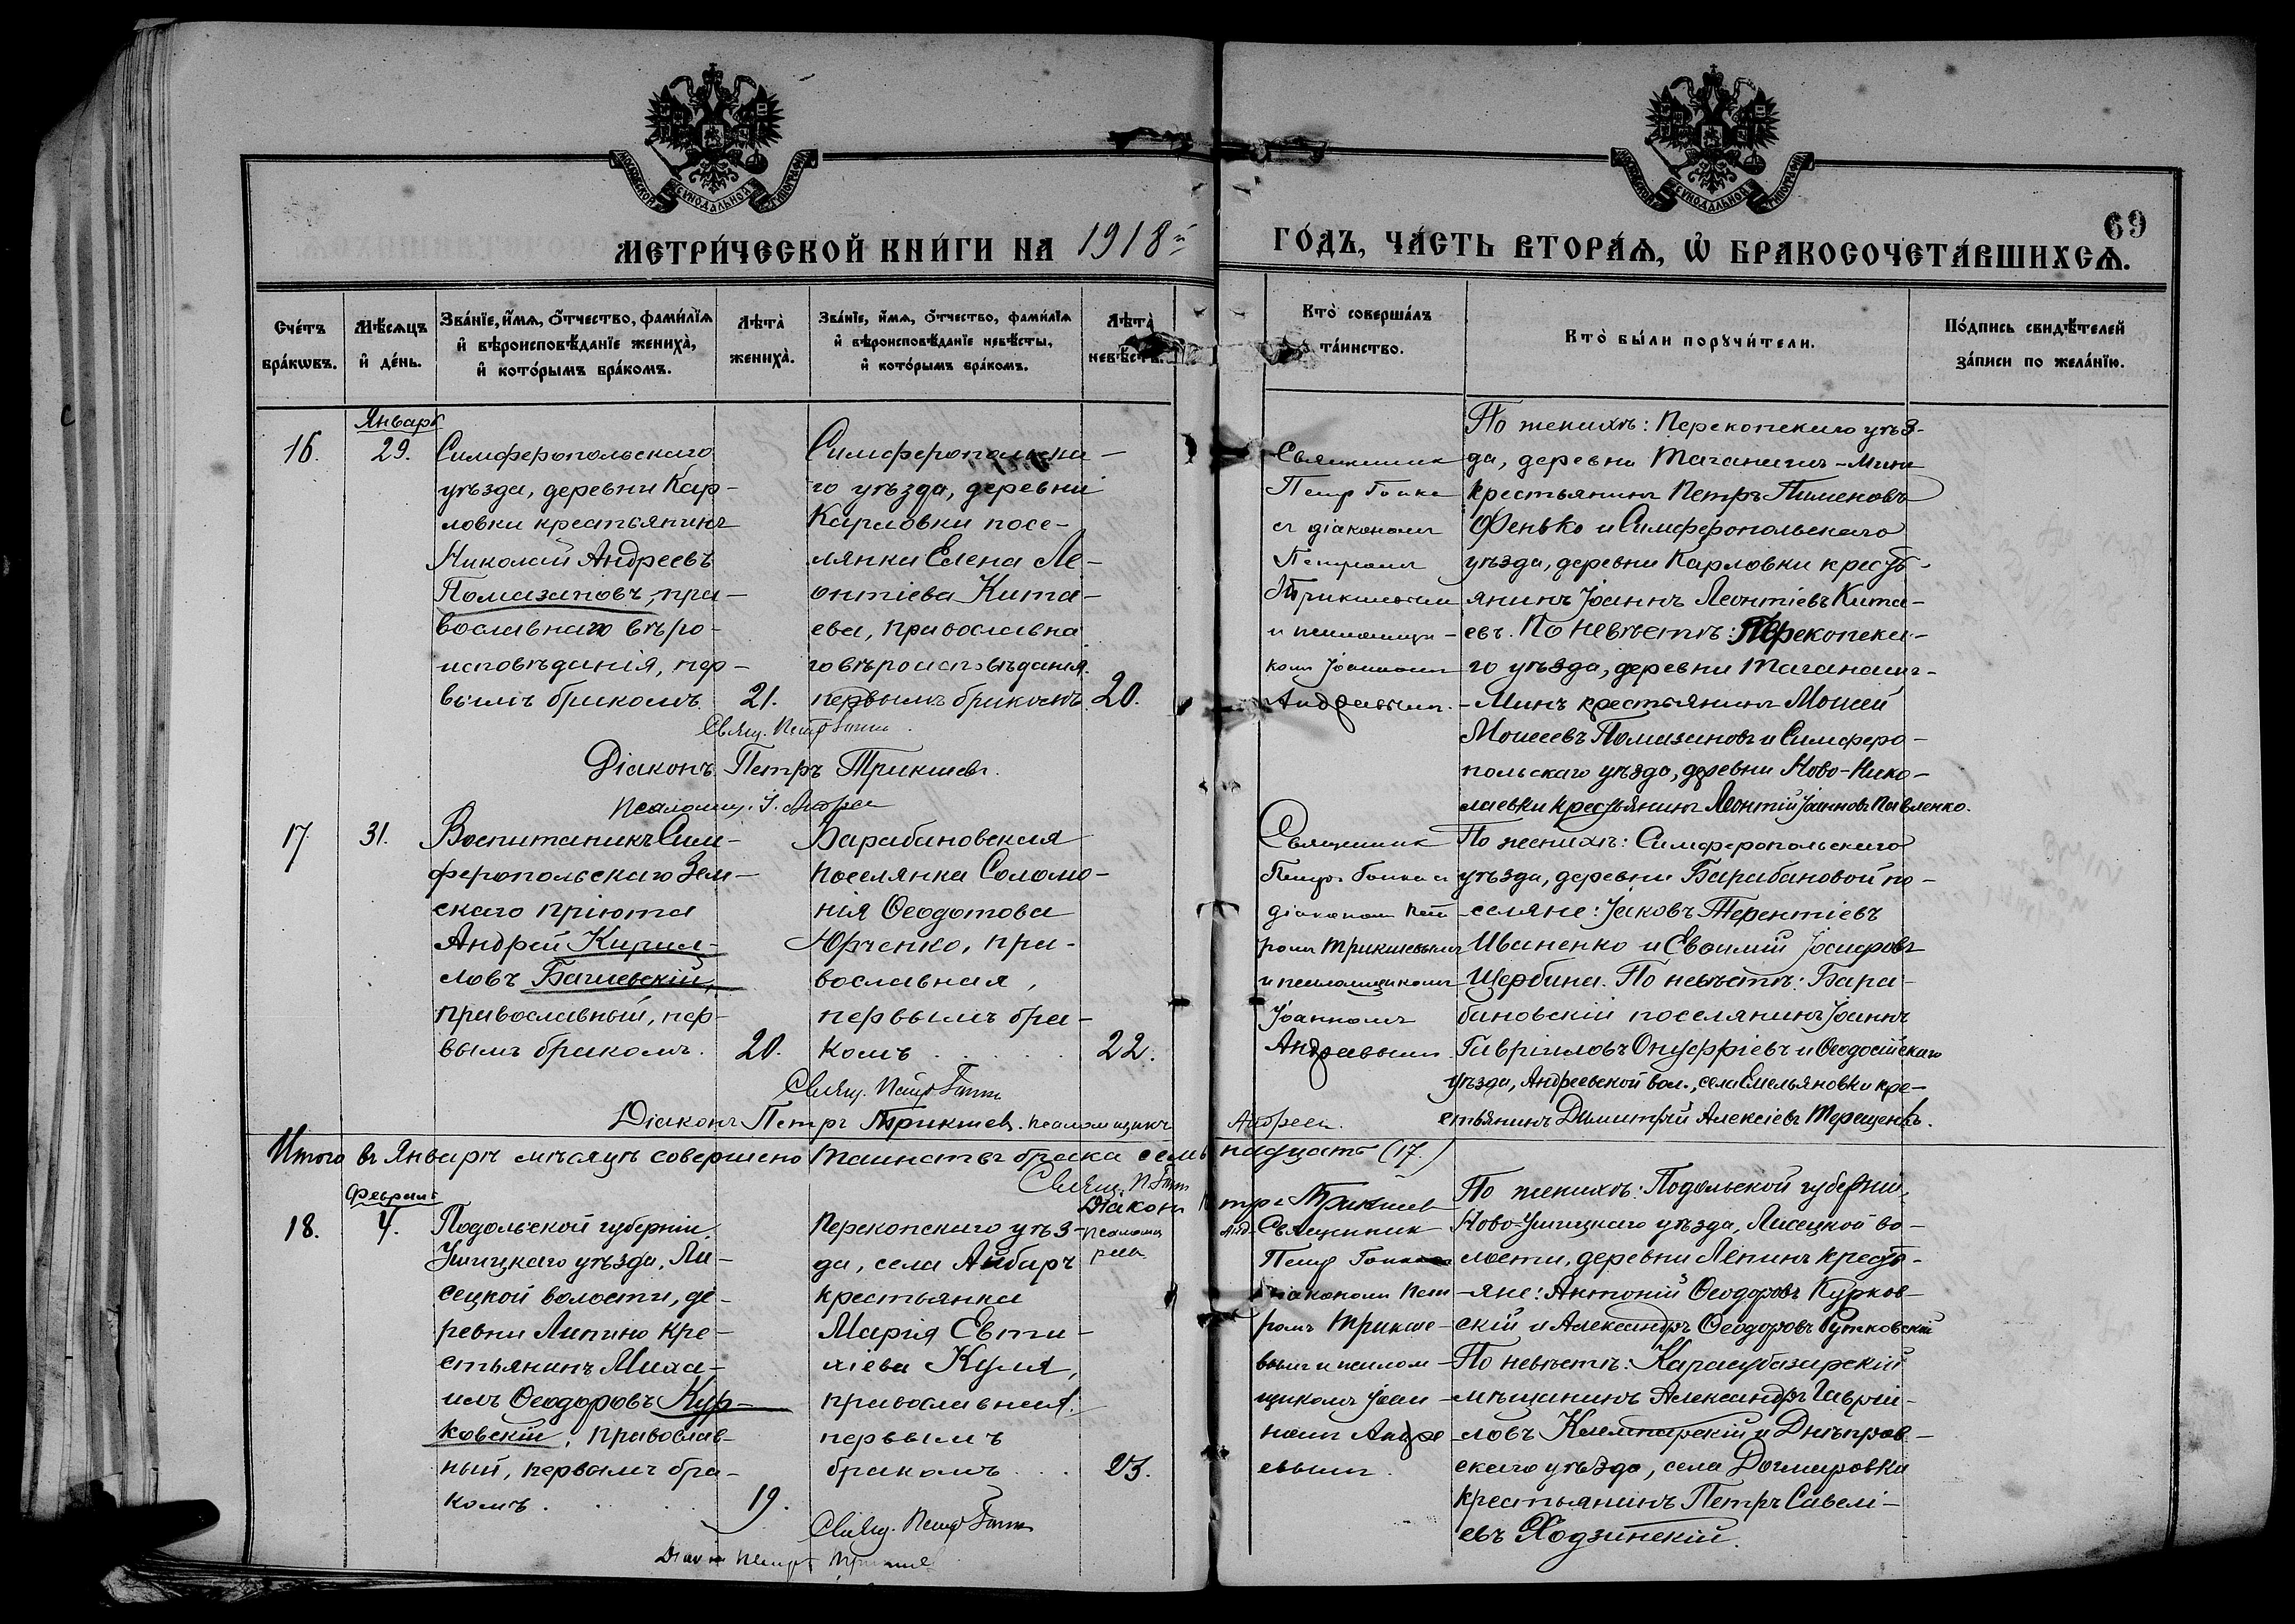 МОСКОВСКОЙ СУНОДАЛЬНОЙ ТИПОГРАФІИ
МОСКОВСКОЙ СУНОДАЛЬНОЙ ТИПОГРАФІИ
69
МЕТРИ́ЧЕСКОЙ КНИ́ГИ НА 1918й ГО́ДЪ, ЧА́СТЬ ВТОРА́Ѧ, Ѡ҆ БРАКОСОЧЕТА́ВШИХСѦ.
Сче́тъ бра́кѡвъ.
Мѣ́сѧцъ и҆ де́нь.
Зва́нїе, и҆́мѧ, ѻ҆́тчество, фами́лїѧ
и҆ вѣроисповѣ́данїе жениха̀,
и҆ кото́рымъ бра́комъ.
Лѣ́та̀ жениха̀.
Зва́нїе, и҆́мѧ, ѻ҆́тчество, фами́лїѧ
и҆ вѣроисповѣ́данїе невѣ́сты,
и҆ кото́рымъ бра́комъ.
Лѣ́та̀ невѣ́сты.
Кто̀ соверша́лъ
та́инство.
Кто̀ бы́ли порꙋчи́тели.
По́дпись свидѣ́телей
за́писи по жела́нїю.
Январь
16.
29.
Симферопольскаго
уѣзда, деревни Кар-
ловки крестьянинъ
Николай Андреевъ
Помазановъ, пра-
вославнаго вѣро-
исповѣданія, пер-
вымъ бракомъ.
21.
Симферопольска-
го уѣзда, деревни
Карловки посе-
лянка Елена Ле-
онтіева Кита-
ева, православна
го вѣроисповѣданія.
первымъ бракомъ
20.
Священникъ
Петръ
съ діакономъ
Петромъ
Трикшевым
и псаломщи-
комъ Іоанномъ
Андреевымъ.
По женихѣ: Перекопскаго уѣз-
да, деревни Таганашъ-Минъ
крестьянинъ Петръ Пименовъ
Фенько и Симферопольскаго
уѣзда, деревни Карловки кресть-
янинъ Іоаннъ Леонтіевъ Кита-
евъ. По невѣстѣ: Перекопска-
го уѣзда, деревни Таганашъ-
-Минъ крестьянинъ Моисей
Моисеевъ Помазановъ и Симферо-
польскаго уѣзда, деревни Ново-Нико-
лаевки крестьянинъ Леонтій Іоанновъ Павленко.
Свящ. Петръ
Діаконъ Петръ Трикшевъ.
Псаломщ. І. Андреев
17.
31.
Воспитаникъ Сим-
феропольскаго Зем-
скаго пріюта
Андрей Кирил-
ловъ Багиевскій,
православный, пер-
вымъ бракомъ.
20.
Барабановская
поселянка Соломо-
нія Ѳеодотова
Юрченко, пра-
вославная,
первымъ бра-
комъ
22.
Священникъ
Петръ съ
діаконом Пет
ромъ Трикшевымъ
и псаломщикомъ
Іоанномъ
Андреевымъ.
По женихѣ: Симферопольскаго
уѣзда, деревни Барабановой по-
селяне: Іаковъ Терентіевъ
Иваненко и Евѳимій Іосифовъ
Щербина. По невѣстѣ: Бара-
бановскій поселянинъ Іоаннъ
Гавріиловъ Онуфріевъ и Ѳеодосійскаго
уѣзда, Андреевской вол., села Емельяновки кре-
стьянинъ Димитрій Алексіевъ Терещенко.
Свящ. Петръ
Діаконъ Петръ Трикшев. псаломщикъ Андреев.
Итого въ Январѣ мѣсяцѣ совершено таинствъ брака семьнадцать (17.)
Свящ. П.
Діаконъ Петръ Трикшев
псаломщ Анд-
реев
Февраль
18.
4.
Подольской губерніи,
Ушицкаго уѣзда, Ли-
сецкой волости, де-
ревни Липино кре-
стьянинъ Миха-
илъ Ѳеодоровъ Кур-
ковскій, православ-
ный, первымъ бра-
комъ.
19.
Перекопскаго уѣз-
да, села Айбаръ
крестьянка
Марія Евти-
хіева Куля,
православная,
первымъ
бракомъ
23.
Священникъ
Петръ
діакономъ Пет
ромъ Трикше-
вымъ и псалом-
щикомъ Іоан-
номъ Андре
евымъ.
По женихѣ: Подольской губерніи,
Ново-Ушицкаго уѣзда, Лисецкой во-
лости, деревни Лепинъ кресть-
яне: Антоній Ѳеодоровъ Курков-
скій и Александръ Ѳеодоровъ Рутковскій
По невѣстѣ: Карасубазарскій
мѣщанинъ Александръ Гаврій-
ловъ и Днѣпров-
скаго уѣзда, села Догмаровки
крестьянинъ Петръ Савелі-
евъ Ходзинскій.
Свящ. Петръ
Діакон Петръ Трикшев